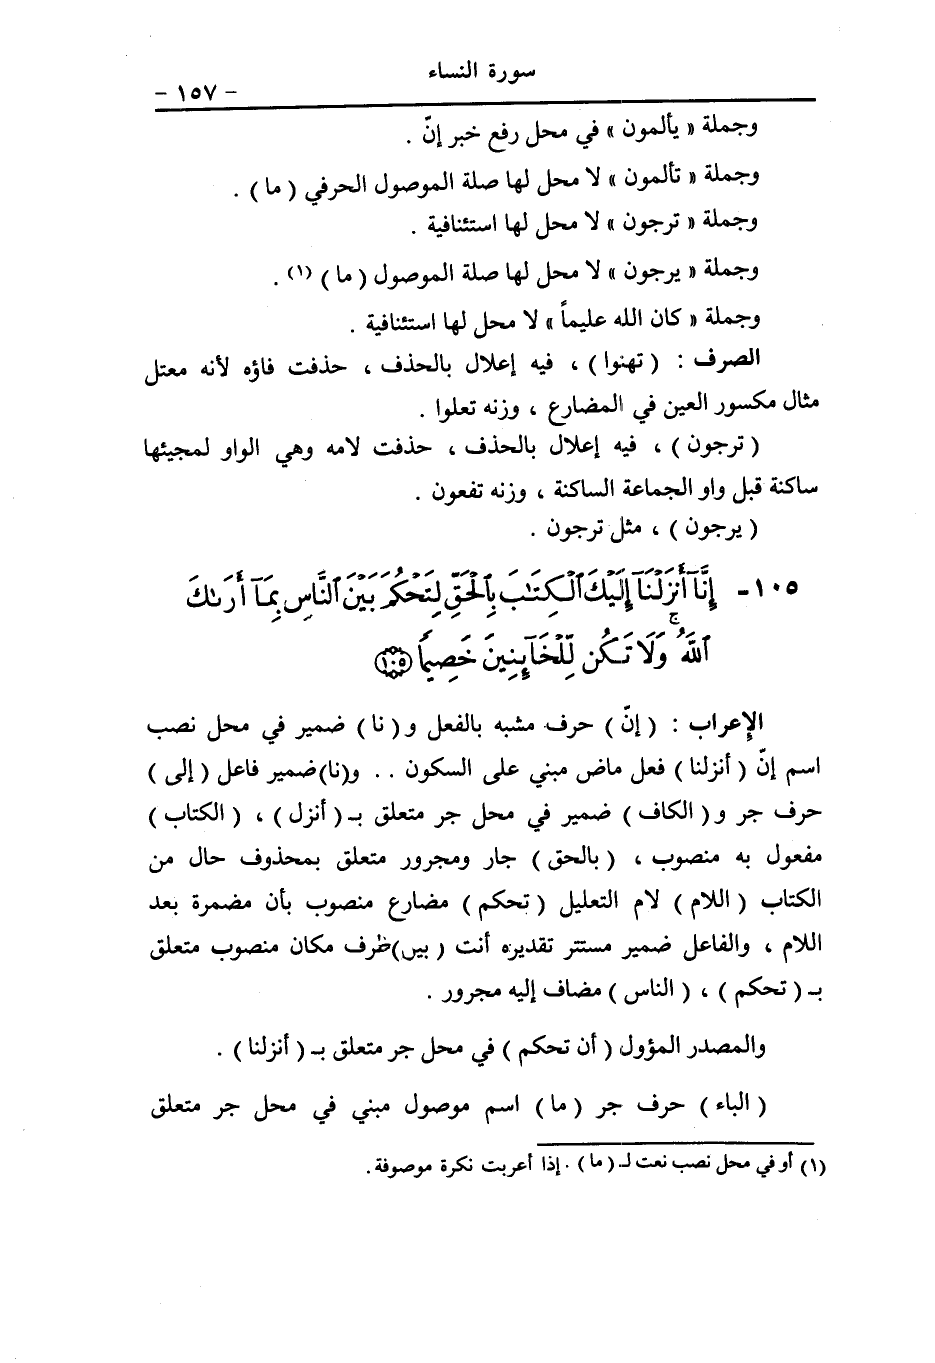 سورة النساء
- ١٥٧ -
وجملة « يألمون » في محل رفع خبر إنّ .
وجملة « تألمون » لا محل لها صلة الموصول الحرفي ( ما ) .
وجملة « ترجون » لا محل لها استئنافية .
وجملة « يرجون » لا محل لها صلة الموصول ( ما ) (١) .
وجملة « كان الله عليماً » لا محل لها استئنافية .
الصرف : ( تهنوا ) ، فيه إعلال بالحذف ، حذفت فاؤه لأنه معتل
مثال مكسور العين في المضارع ، وزنه تعلوا .
( ترجون ) ، فيه إعلال بالحذف ، حذفت لامه وهي الواو لمجيئها
ساكنة قبل واو الجماعة الساكنة ، وزنه تفعون .
( يرجون ) ، مثل ترجون .
١٠٥ - إِنَّآ أَنزَلْنَآ إِلَيْكَ ٱلْكِتَٰبَ بِٱلْحَقِّ لِتَحْكُمَ بَيْنَ ٱلنَّاسِ بِمَآ أَرَىٰكَ
ٱللَّهُ ۚ وَلَا تَكُن لِّلْخَآئِنِينَ خَصِيمًا ﴿١٠٥﴾
الإعراب : ( إنّ ) حرف مشبه بالفعل و( نا ) ضمير في محل نصب
اسم إنّ ( أنزلنا ) فعل ماض مبني على السكون .. و(نا) ضمير فاعل ( إلى )
حرف جر و( الكاف ) ضمير في محل جر متعلق بـ ( أنزل ) ، ( الكتاب )
مفعول به منصوب ، ( بالحق ) جار ومجرور متعلق بمحذوف حال من
الكتاب ( اللام ) لام التعليل ( تحكم ) مضارع منصوب بأن مضمرة بعد
اللام ، والفاعل ضمير مستتر تقديره أنت ( بين) ظرف مكان منصوب متعلق
بـ ( تحكم ) ، ( الناس ) مضاف إليه مجرور .
والمصدر المؤول ( أن تحكم ) في محل جر متعلق بـ ( أنزلنا ) .
( الباء ) حرف جر ( ما ) اسم موصول مبني في محل جر متعلق
(١) أو في محل نصب نعت لـ ( ما ) . إذا أعربت نكرة موصوفة .